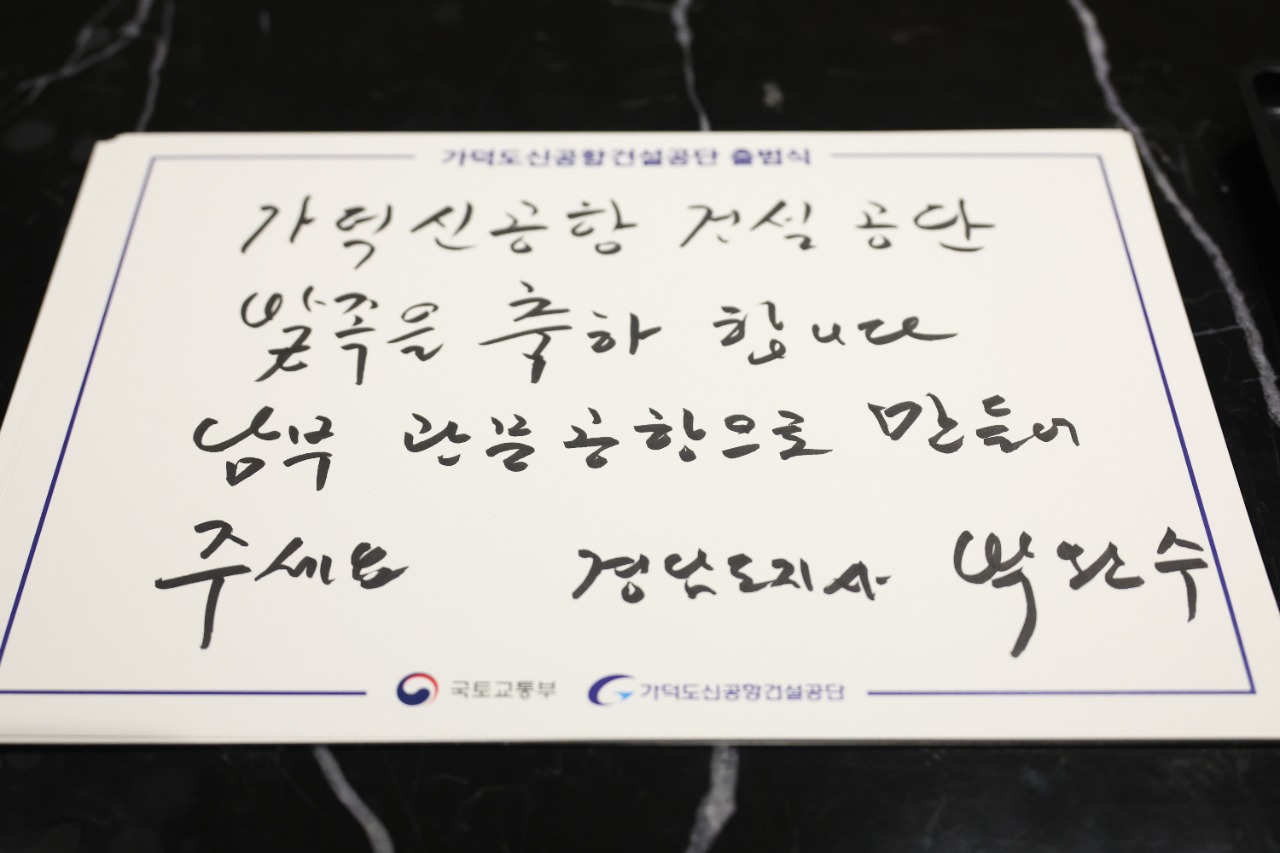 가덕도신공항건설공단 출범식
가덕신공항 건설공단
발족을 축하 합니다
남부 관문공항으로 만들어
주세요 경남도지사 박완수
국토교통부 가덕도신공항건설공단